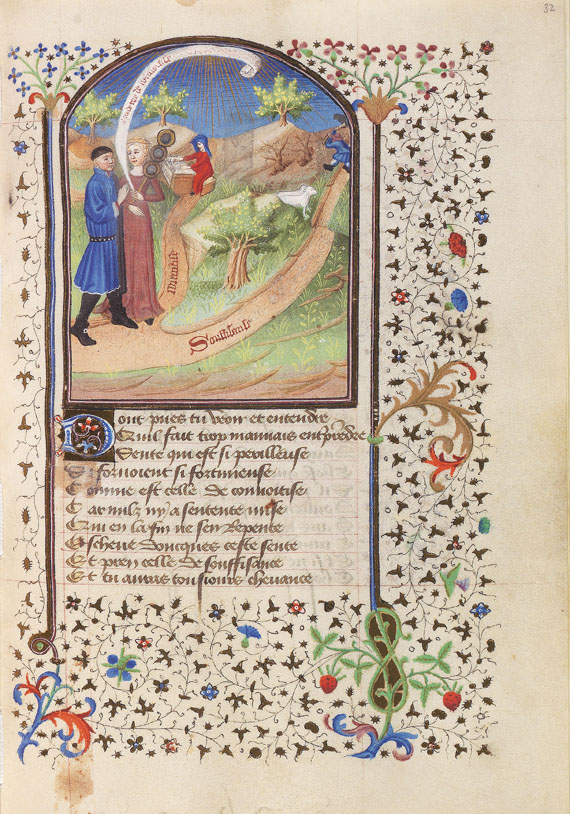 32
Souffisance
Dont pues tu veoir et entendre
Quil fait trop mauuais entprendre
Sente qui est si perilleuse
Si foruoient si fortuneuse
Comme est celle de couuoitise
Car nulz ny a sentente mise
Qui en la fin ne sen repente
Escheue doncques ceste sente
Et pren celle de souffisance
Et tu auras tousiours cheuance